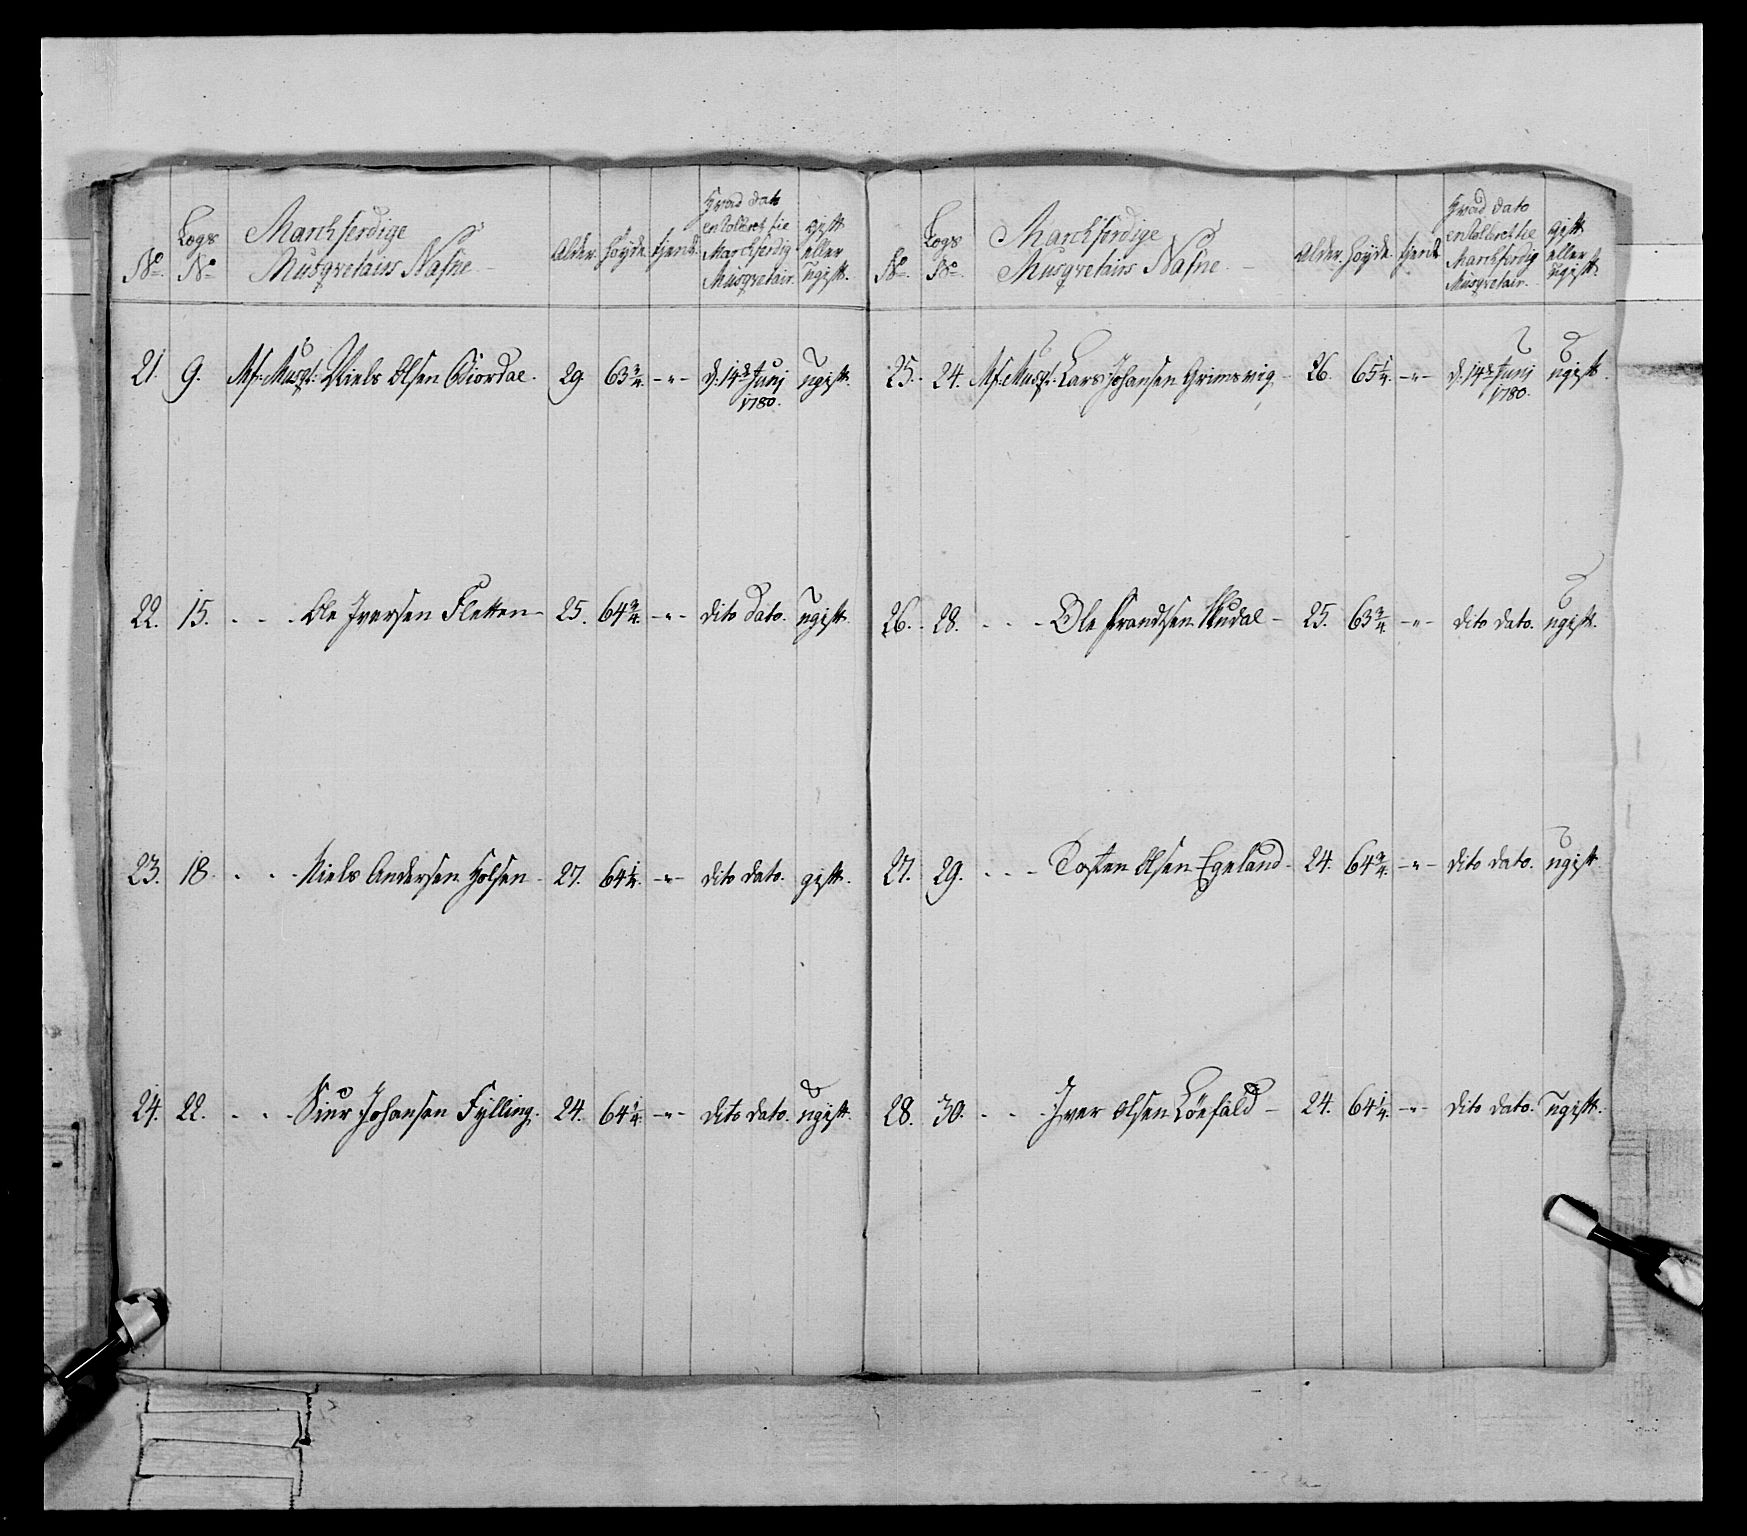 No
Logs No
Marchferdige
Musqvetairs Nafne
Alder.
Høyde
tjent
Hvad dato
enRolleret til
Marchferdig
Musqvetair.
gift
eller
ugift.
21. 9. Mf: Musqt: Niels Olsen 29. 63 3/4. -"- d: 14de Junj ugift.
1780.
22. 15. - - - Ole Iversen Fletten - 25. 64 3/4. -"- dito dato. ugift.
23. 18. - - - Niels Andersen Holsen - 27. 64 1/4. -"- dito dato. gift.
24. 22. - - - Siur Johansen Fylling. 24. 64 1/4. -"- dito dato. ugift.
No
Logs No
Marchferdige
Musqvetairs Nafne -
Alder.
Høyde
tjent
Hvad dato
enRolleret til
Marchferdig
Musqvetair.
gift
eller
ugift.
25. 24. Mf: Musqt: Lars Johansen Grimsvig. 26. 65 1/4. -"- d: 14de Junj ugift
1780.
26. 28. - - - Ole - 25. 63 3/4. -"- dito dato. ugift.
27. 29. - - - Tosten Olsen Egeland - 24. 64 3/4. -"- dito dato. ugift.
28. 30. - - - Iver Olsen Löefald - 24. 64 1/4. -"- dito dato. ugift.